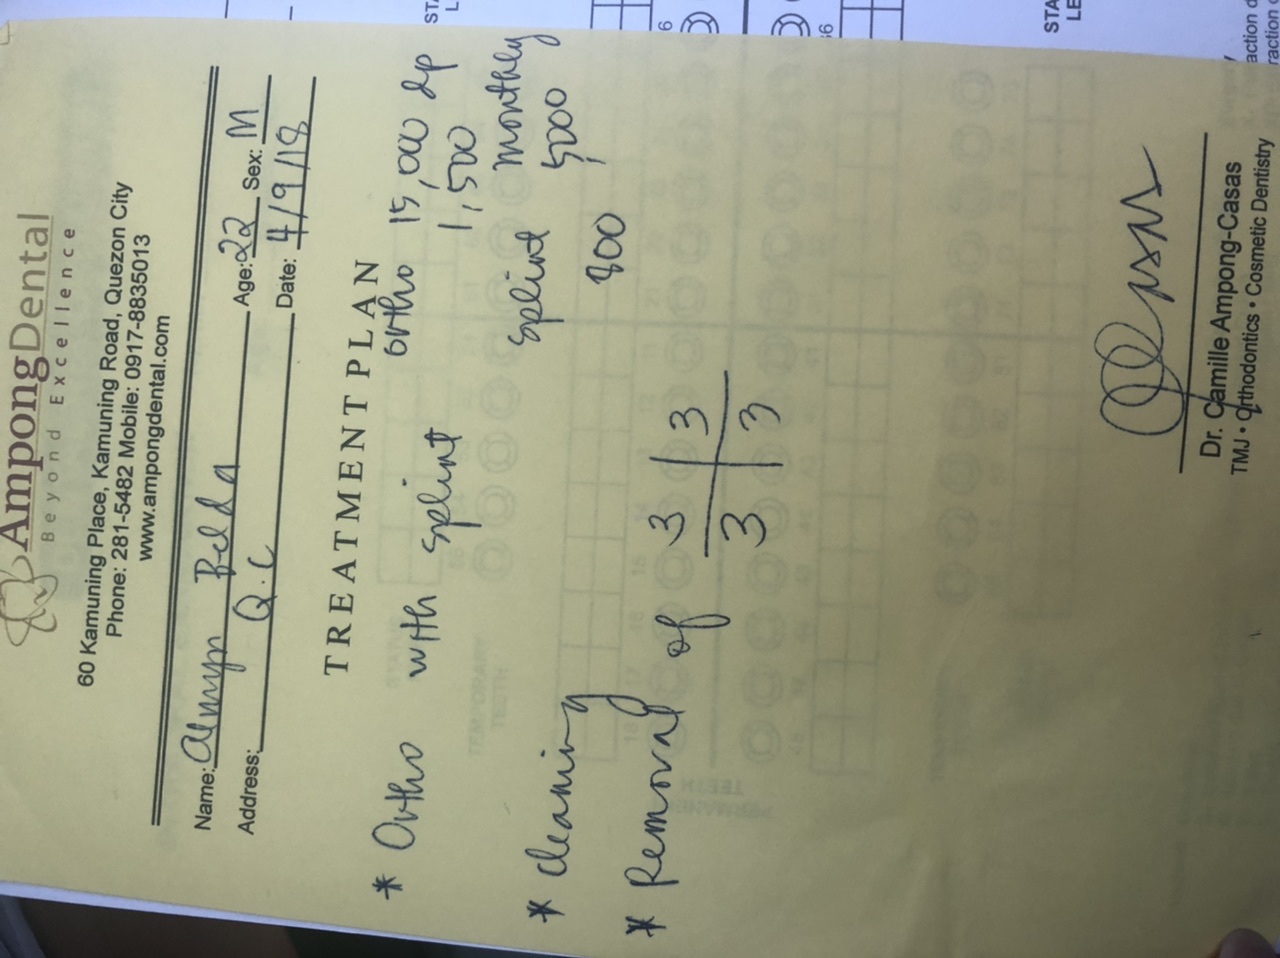 AmpongDental
Beyond Excellence
60 Kamuning Place, Kamuning Road, Quezon City
Phone: 281-5482 Mobile: 0917-8835013
www.ampongdental.com
Name: Belda Age: 22 Sex: M
Address: Q.C Date: 4/9/18
TREATMENT PLAN
* Ortho with splint ortho 15,000 dp
1,500 monthly
splint 5,000
* Cleaning 800
* Removal of 3 | 3
3 | 3
Dr. Camille Ampong-Casas
TMJ • Orthodontics • Cosmetic Dentistry